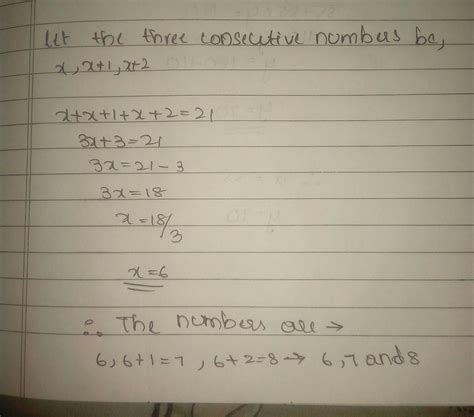 let the three consecutive numbers be,
x, x+1, x+2
x+x+1+x+2=21
3x+3=21
3x=21-3
3x=18
x=18/3
x=6
∴ The numbers are →
6, 6+1=7, 6+2=8→ 6, 7 and 8